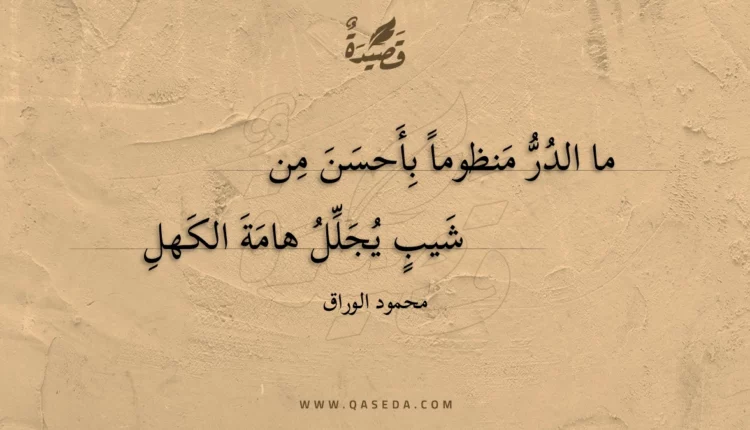 قَصِيدَةٌ
ما الدُرُّ مَنظوماً بِأَحسَنَ مِن
شَيبٍ يُجَلِّلُ هامَةَ الكَهلِ
محمود الوراق
WWW.QASEDA.COM